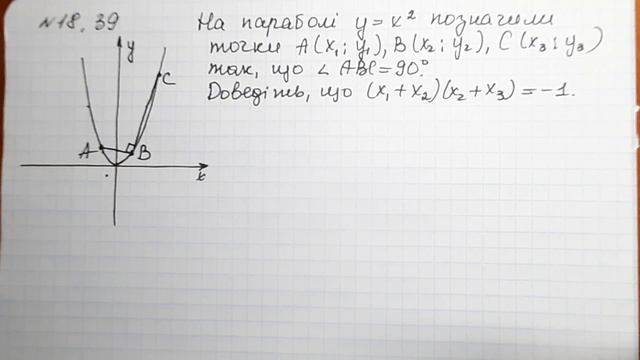 №18, 39
На параболі y = x² позначили
точки A(x₁; y₁), B(x₂; y₂), C(x₃; y₃)
так, що ∠ABC = 90°.
Доведіть, що (x₁ + x₂)(x₂ + x₃) = −1.
y
C
A
B
x